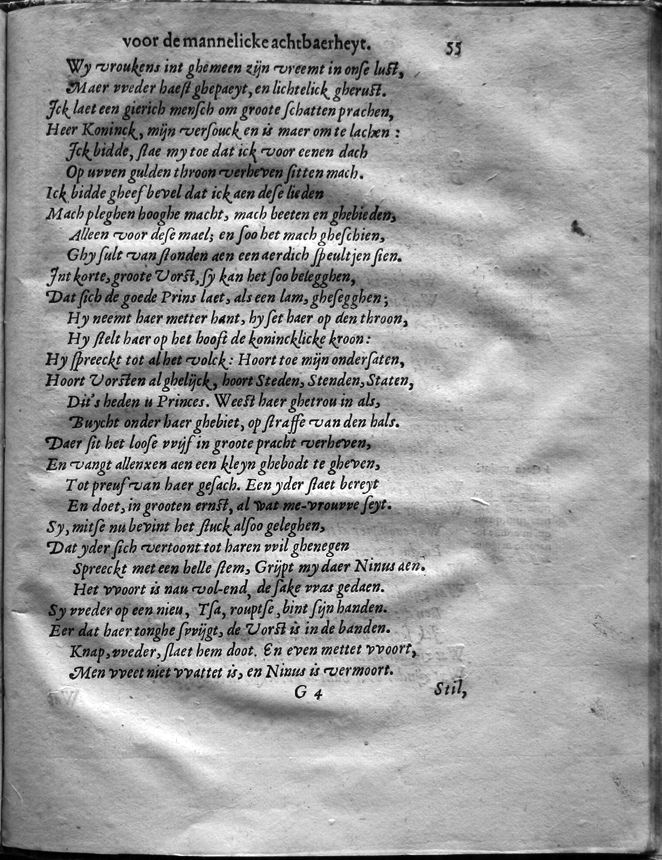 voor de mannelicke achtbaerheyt. 55
Wy vroukens int ghemeen zijn vreemt in onse lust,
Maer vveder haest ghepaeyt, en lichtelick gherust.
Jck laet een gierich mensch om groote schatten prachen,
Heer Koninck, mijn versouck en is maer om te lachen :
Jck bidde, stae my toe dat ick voor eenen dach
Op uvven gulden throon verheven sitten mach.
Ick bidde gheef bevel dat ick aen dese lieden
Mach pleghen hooghe macht, mach beeten en ghebieden,
Alleen voor dese mael; en soo het mach gheschien,
Ghy sult van stonden aen een aerdich speultjen sien.
Jnt korte, groote Vorst, sy kan het soo belegghen,
Dat sich de goede Prins laet, als een lam, ghesegghen;
Hy neemt haer metter hant, hy set haer op den throon,
Hy stelt haer op het hooft de konincklicke kroon:
Hy spreeckt tot al het volck: Hoort toe mijn ondersaten,
Hoort Vorsten al ghelijck, hoort Steden, Stenden, Staten,
Dit's heden u Princes. Weest haer ghetrou in als,
Buycht onder haer ghebiet, op straffe van den hals.
Daer sit het loose vvijf in groote pracht verheven,
En vangt allenxen aen een kleyn ghebodt te gheven,
Tot preuf van haer gesach. Een yder staet bereyt
En doet, in grooten ernst, al wat me-vrouvve seyt.
Sy, mitse nu bevint het stuck alsoo geleghen,
Dat yder sich vertoont tot haren vvil ghenegen
Spreeckt met een helle stem, Grijpt my daer Ninus aen.
Het vvoort is nau vol-end, de sake vvas gedaen.
Sy vveder op een nieu, Tsa, rouptse, bint sijn handen.
Eer dat haer tonghe svvijgt, de Vorst is in de banden.
Knap, vveder, slaet hem doot. En even mettet vvoort,
Men vveet niet vvattet is, en Ninus is vermoort.
G 4 Stil,